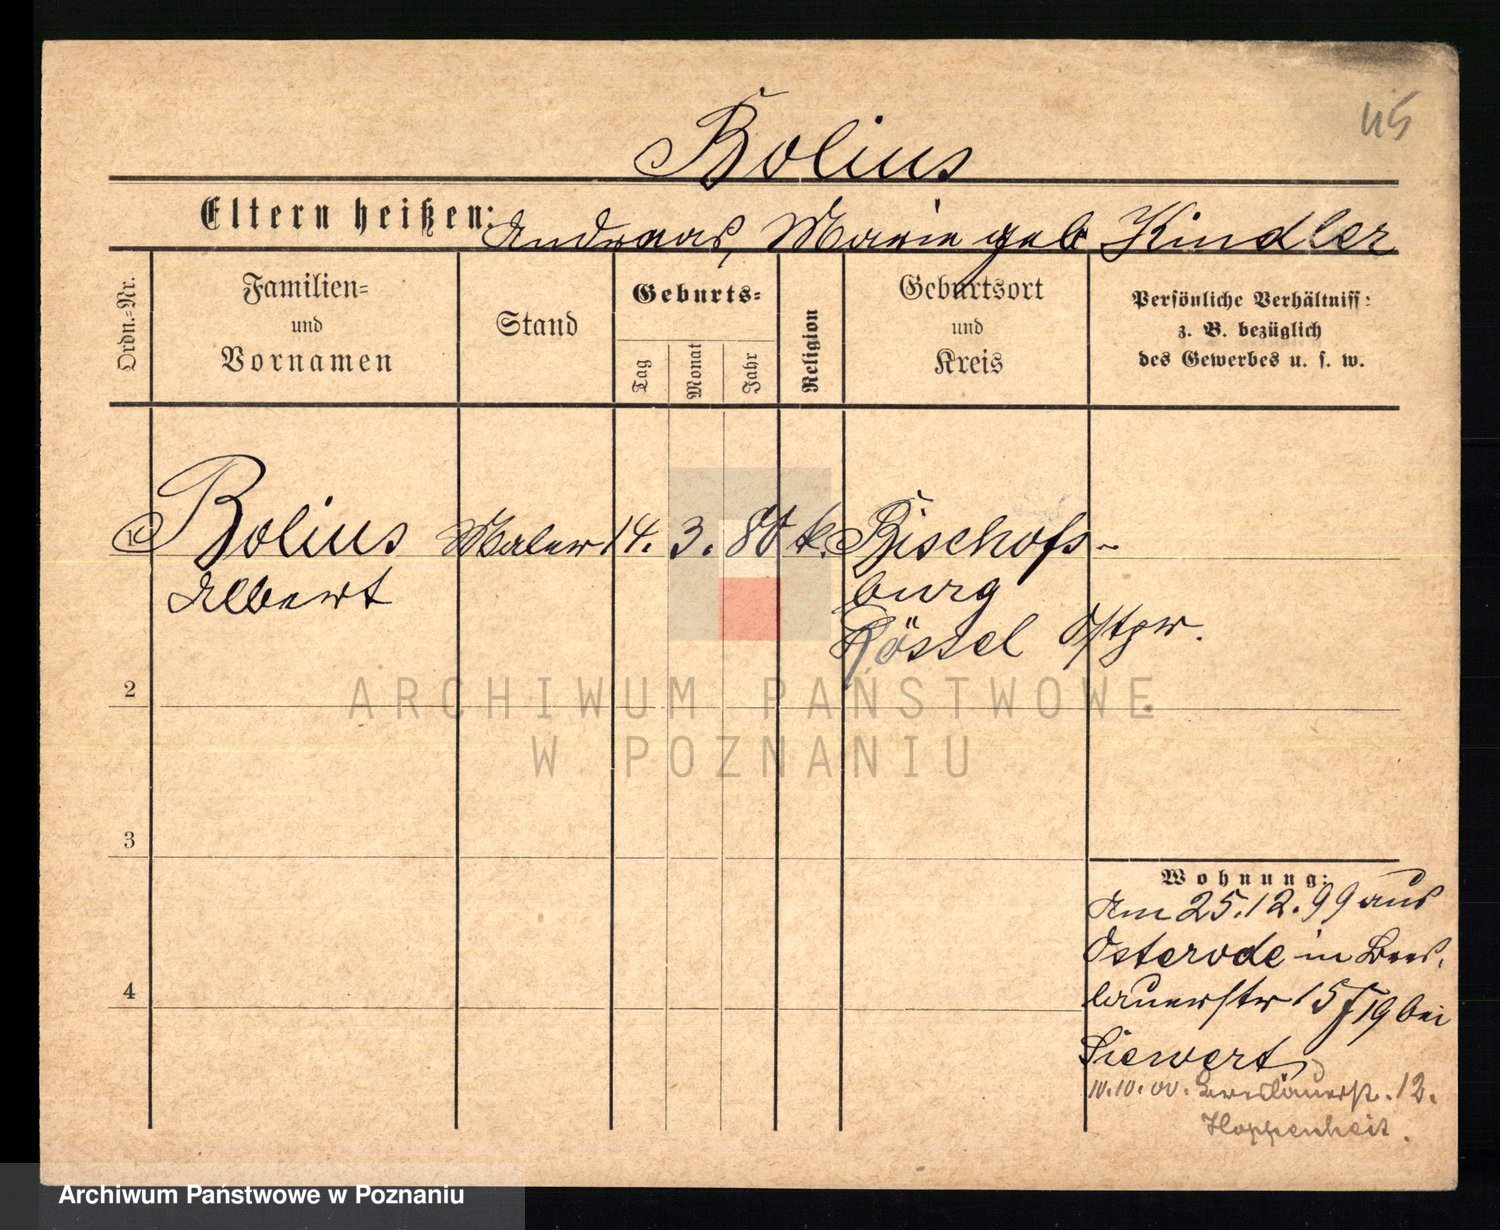 45
Bolius
Eltern heißen: Andreas, Marie geb Kindler
Ordn.-Nr.
Familien-
und
Vornamen
Stand
Geburts-
Tag
Monat
Jahr
Religion
Geburtsort
und
Kreis
Persönliche Verhältniss:
z. B. bezüglich
des Gewerbes u. s. w.
1 Bolius Maler 14. 3. 80 k. Bischofs-
Albert burg
Rössel Ostpr.
2
ARCHIWUM PAŃSTWOWE
W POZNANIU
3
Wohnung:
Am 25.12.99 aus
Osterode in Bres,
lauerstr 15/19 bei
Siewert
10.10.00. Breslauerstr. 12.
Hoppenheit.
4
Archiwum Państwowe w Poznaniu